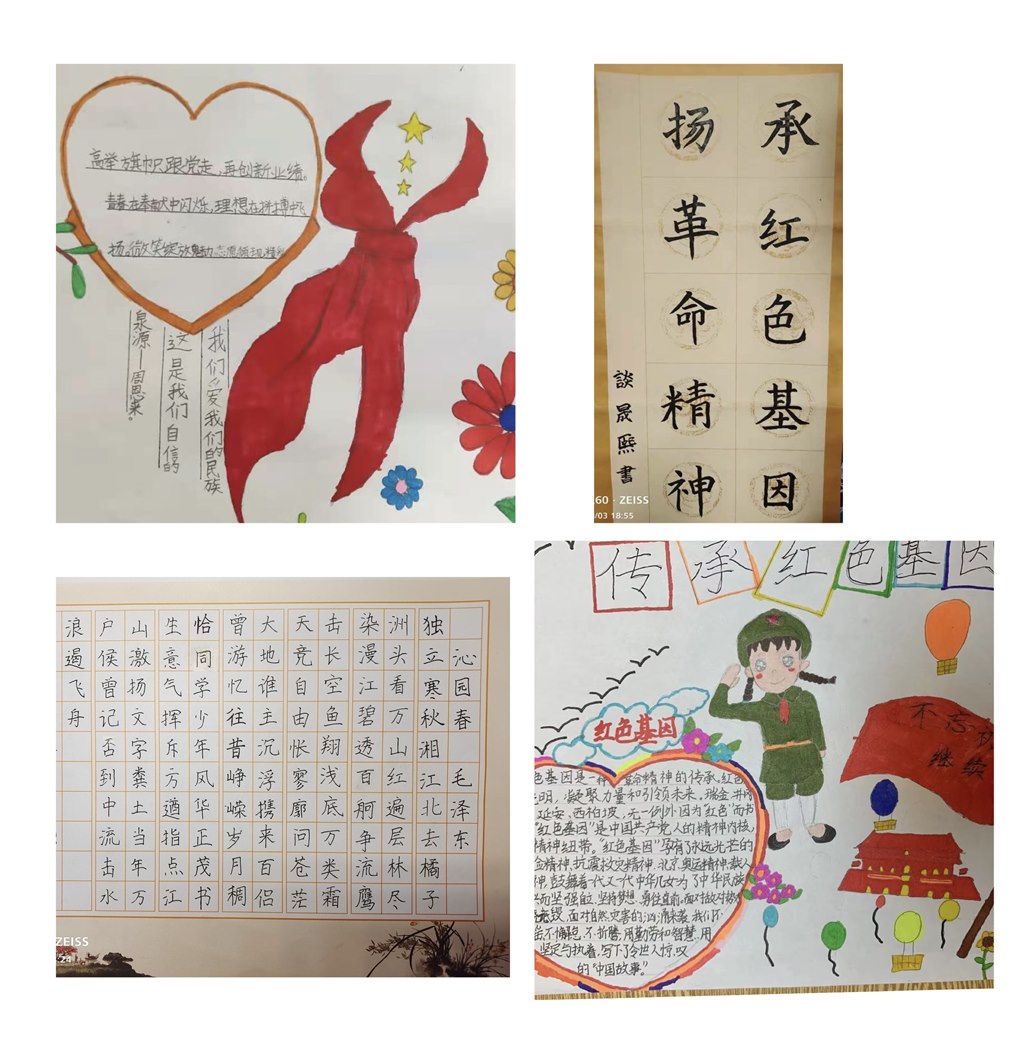 高举旗帜跟党走,再创新业绩。
青春在奉献中闪烁,理想在拼搏中飞
扬。微笑绽放魅力志愿
我们爱我们的民族
这是我们自信的
泉源——周恩来。
承红色基因
扬革命精神
談晟熙書
60 · ZEISS
/03 18:55
沁园春 毛泽东
独立寒秋湘江北去橘子
洲头看万山红遍层林尽
染漫江碧透百舸争流鹰
击长空鱼翔浅底万类霜
天竞自由怅寥廓问苍茫
大地谁主沉浮携来百侣
曾游忆往昔峥嵘岁月稠
恰同学少年风华正茂书
生意气挥斥方遒指点江
山激扬文字粪土当年万
户侯曾记否到中流击水
浪遏飞舟
ZEISS
传承红色基因
红色基因
不忘
继续
色基因是一种革命精神的传承,红色
明,凝聚力量和引领未来,瑞金,井冈
延安、西柏坡,无一例外因为"红色"而
"红色基因"是中国共产党人的精神内核,
精神纽带。"红色基因"孕有永远光芒的
金精神,抗震救灾精神,北京奥运精神,载人
神,鼓舞着一代又一代中华儿女为了中华民族
而坚强屹立,坚持梦想,勇往直前,面对敌对势
面对自然灾害的汹涌来袭,我们不
不懈怠,不折腾,用勤劳和智慧,用
坚定与执着,写下了令世人惊叹
的"中国故事"。